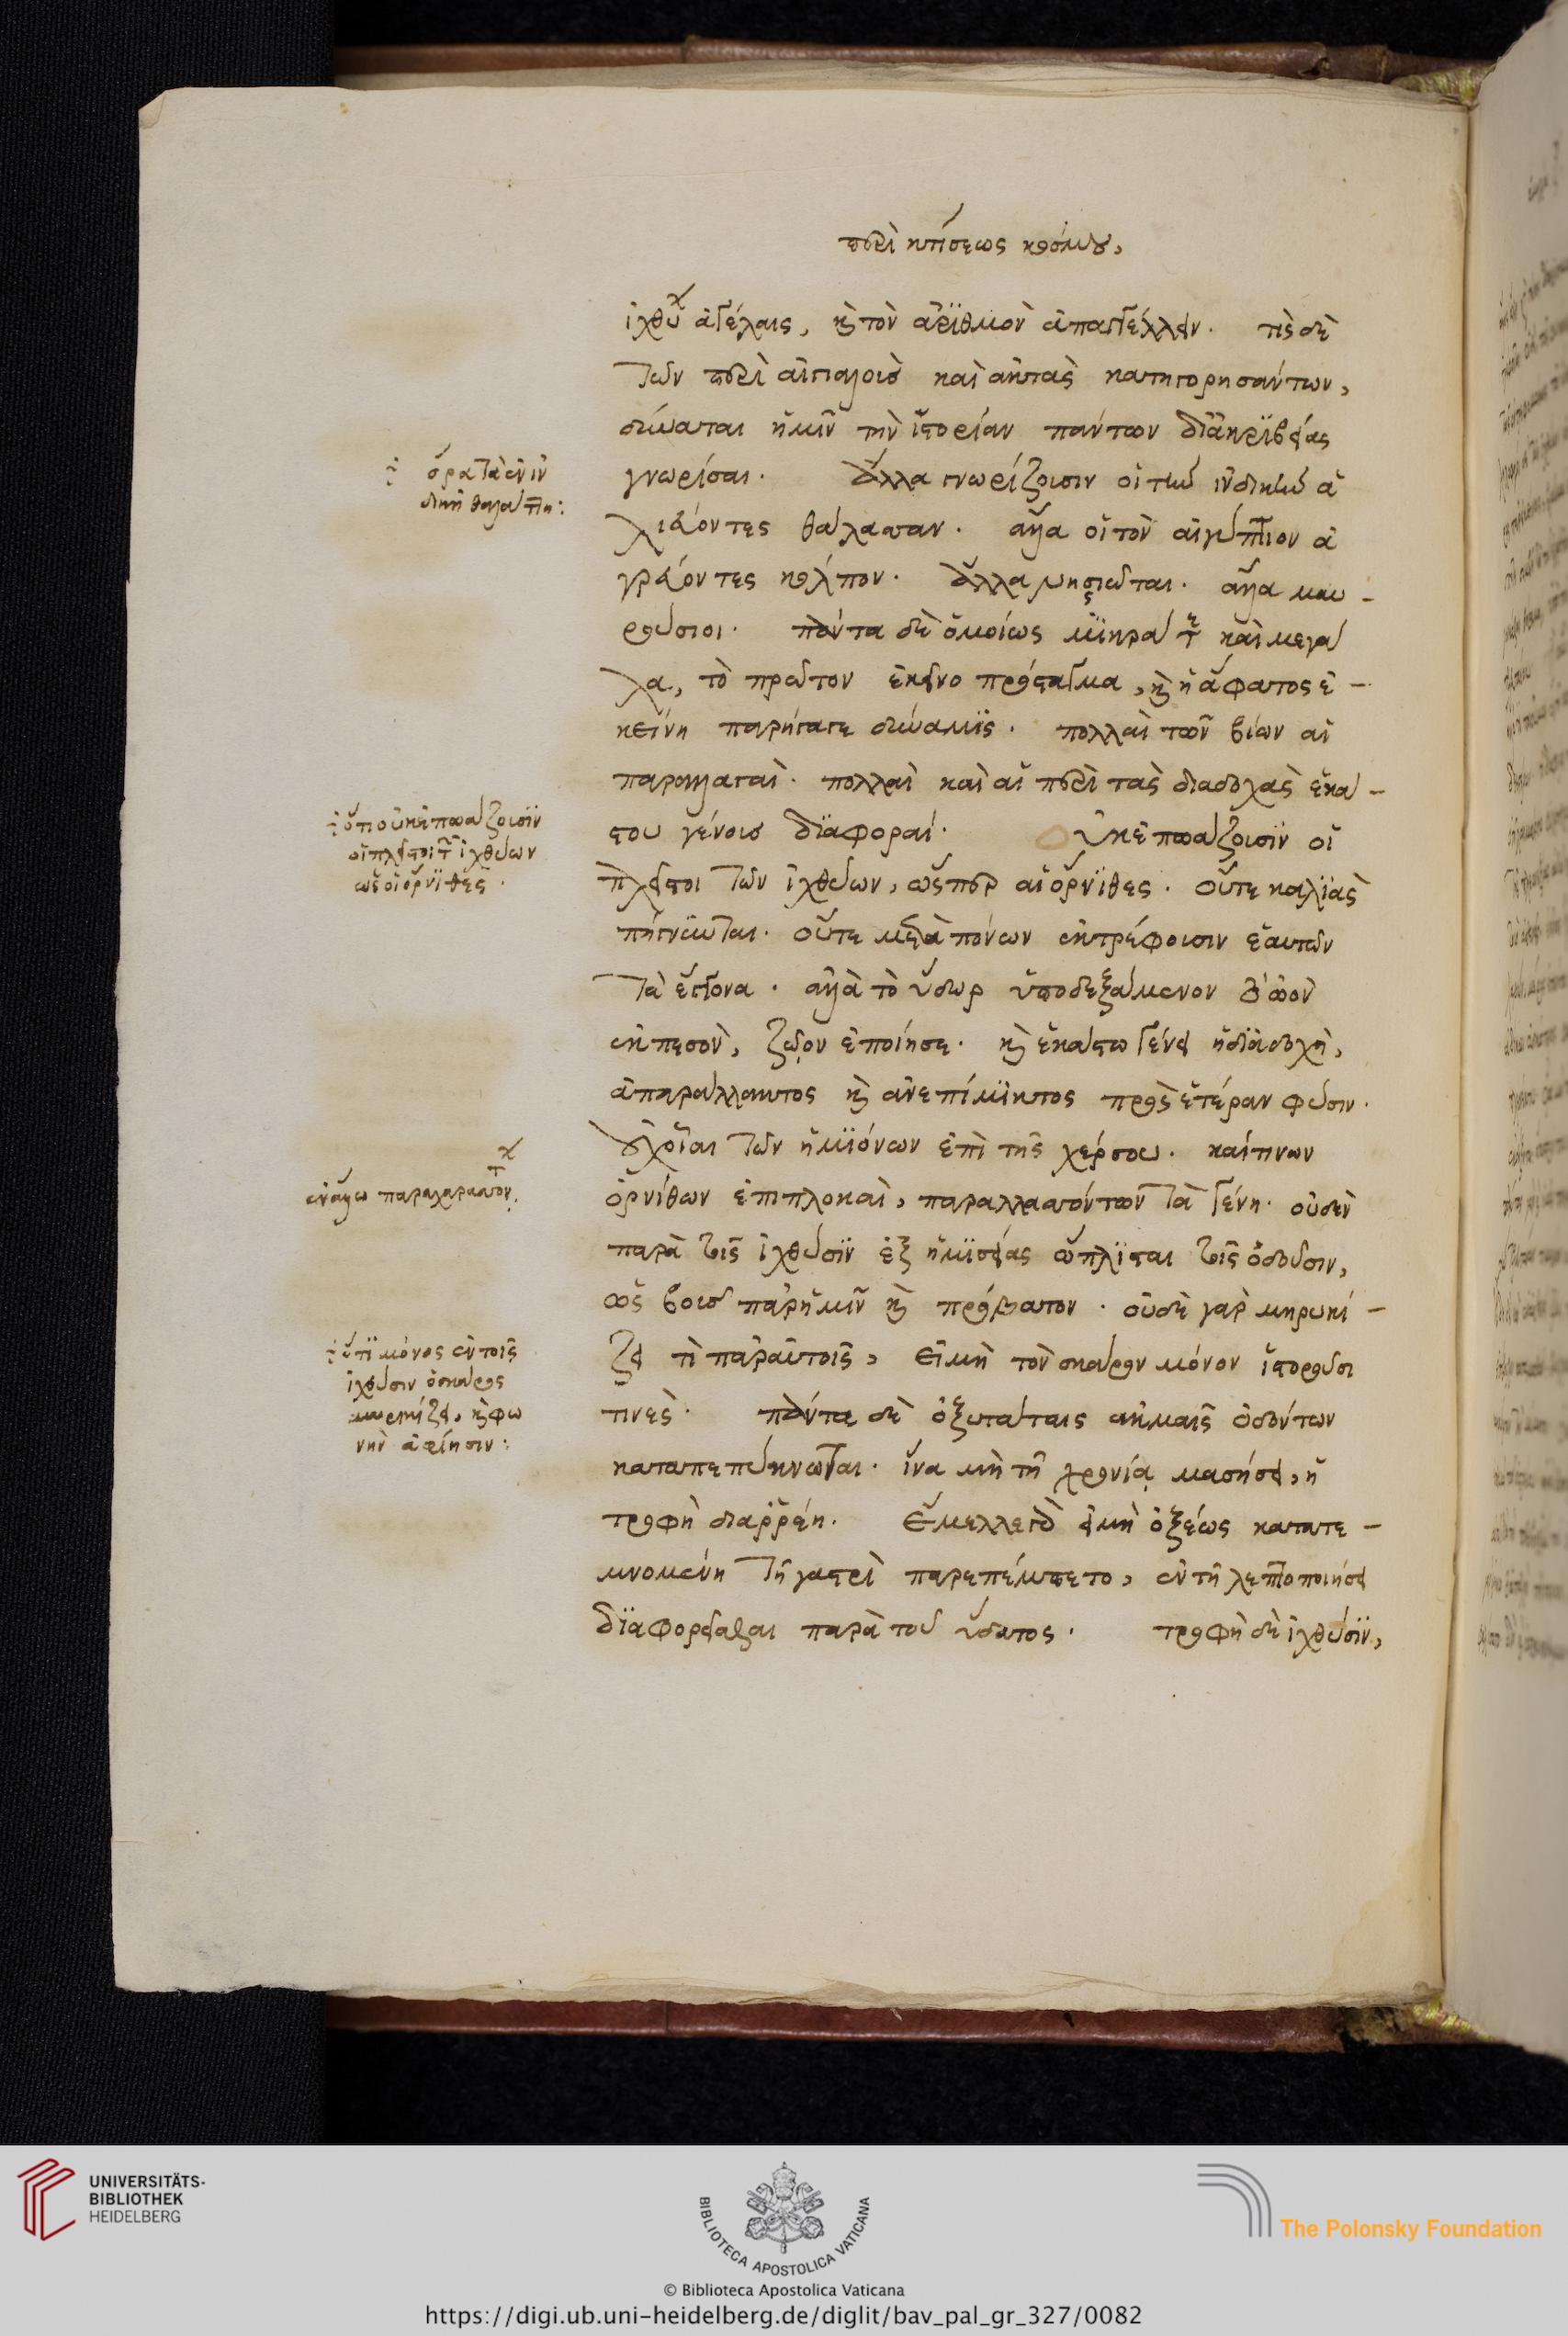 περὶ κτίσεως κόσμου,
ἰχθύων ἀγέλαις, καὶ τὸν ἀριθμὸν ἀπαγγέλλειν. τίς δὲ
τῶν περὶ αἰγιαλοὺς καὶ ἀκτὰς κατηγορησάντων,
δύναται ἡμῖν τὴν ἱστορίαν πάντων δι' ἀκριβείας
γνωρίσαι. ἄλλα γνωρίζουσιν οἱ τὴν ἰνδικὴν ἁ
λιεύοντες θάλασσαν. ἄλλα οἱ τὸν αἰγύπτιον ἀ
γρεύοντες κόλπον. ἄλλα νησιῶται. ἄλλα μαυ-
ρούσιοι. πάντα δὲ ὁμοίως μικρά τε καὶ μεγά
λα, τὸ πρῶτον ἐκεῖνο πρόσταγμα, καὶ ἡ ἄφατος ἐ-
κείνη παρήγαγε δύναμις. πολλαὶ τῶν βίων αἱ
παραλλαγαί. πολλαὶ καὶ αἱ περὶ τὰς διαδοχὰς ἑκά-
στου γένους διαφοραί. οὐκ ἐπωάζουσιν οἱ
πλεῖστοι τῶν ἰχθύων, ὥσπερ αἱ ὄρνιθες. οὔτε καλιὰς
πήγνυνται. οὔτε μετὰ πόνων ἐκτρέφουσιν ἑαυτῶν
τὰ ἔγγονα. ἀλλὰ τὸ ὕδωρ ὑποδεξάμενον τὸ ὠὸν
ἐκπεσὸν, ζῶον ἐποίησε. καὶ ἑκάστω γένει ἡ διαδοχὴ,
ἀπαράλλακτος καὶ ἀνεπίμικτος πρὸς ἑτέραν φύσιν.
οὐχ οἷαι τῶν ἡμιόνων ἐπὶ τῆς χέρσου. καί τινων
ὀρνίθων ἐπιπλοκαὶ, παραλλασσόντων τὰ γένη. οὐδὲν
παρὰ τοῖς ἰχθύσιν ἐξ ἡμισείας ὥπλισται τοῖς ὀδοῦσιν,
ὡς βοῦς παρ' ἡμῖν καὶ πρόβατον. οὐδὲ γὰρ μηρυκί-
ζει τι παρ' αὐτοῖς, εἰ μὴ τὸν σκάρον μόνον ἱστοροῦσι
τινές. πάντα δὲ ὀξυτάταις ἀκμαῖς ὀδόντων
καταπεπύκνωται. ἵνα μὴ τῇ χρονίᾳ μασήσει, ἡ
τροφὴ διαρρέῃ. ἔμελλε γὰρ εἰ μὴ ὀξέως κατατε-
μνομένη τῇ γαστρὶ παρεπέμπετο, ἐν τῇ λεπτοποιήσει
διαφορεῖσθαι παρὰ τοῦ ὕδατος. τροφὴ δὲ ἰχθύσιν,
ὅρα τὰ ἐν ἰν
δικῇ θαλάττῃ:
ὅτι οὐκ ἐπωάζουσιν
οἱ πλεῖστοι τῶν ἰχθύων
ὡς οἱ ὄρνιθες.
ἐν ἄλλω παραχαρασσόντων.
ὅτι μόνος ἐν τοῖς
ἰχθύσιν ὁ σκάρος
μυρικίζει, καὶ φω
νὴν ἀφίησιν:
UNIVERSITÄTS-
BIBLIOTHEK
HEIDELBERG
BIBLIOTECA APOSTOLICA VATICANA
The Polonsky Foundation
© Biblioteca Apostolica Vaticana
https://digi.ub.uni-heidelberg.de/diglit/bav_pal_gr_327/0082